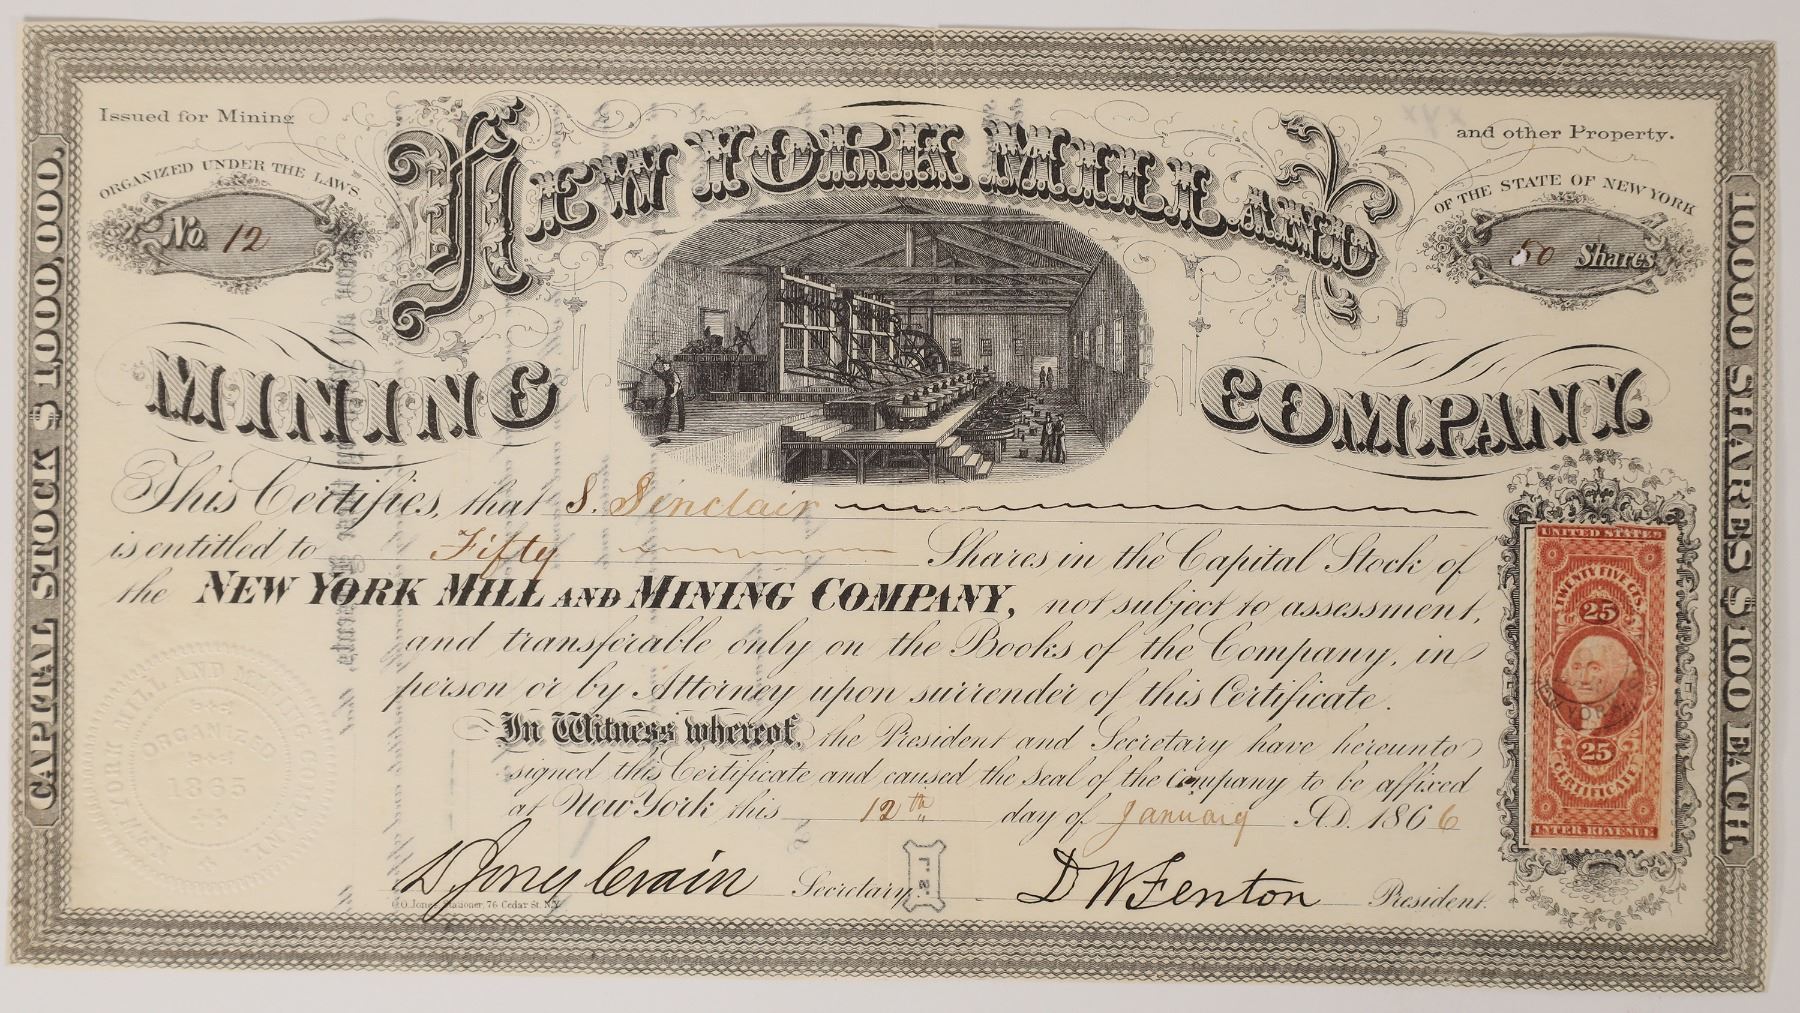 Issued for Mining
and other Property.
ORGANIZED UNDER THE LAWS
OF THE STATE OF NEW YORK
No. 12
50 Shares
NEW YORK MILL AND
MINING COMPANY
CAPITAL STOCK $1,000,000.
10,000 SHARES $100 EACH.
This Certifies, that S. Sinclair
is entitled to Fifty Shares in the Capital Stock of
the NEW YORK MILL AND MINING COMPANY, not subject to assessment,
and transferable only on the Books of the Company, in
person or by Attorney upon surrender of this Certificate.
In Witness whereof, the President and Secretary have hereunto
signed this Certificate and caused the seal of the Company to be affixed
at New York this 12th day of January A.D. 1866
Crain Secretary.
L.S.
D W Fenton President.
Stationer, 76 Cedar St. N.Y.
UNITED STATES
TWENTY FIVE CTS.
25
NEW YORK
25
CERTIFICATE
INTER. REVENUE
NEW YORK MILL AND MINING COMPANY
ORGANIZED
1865